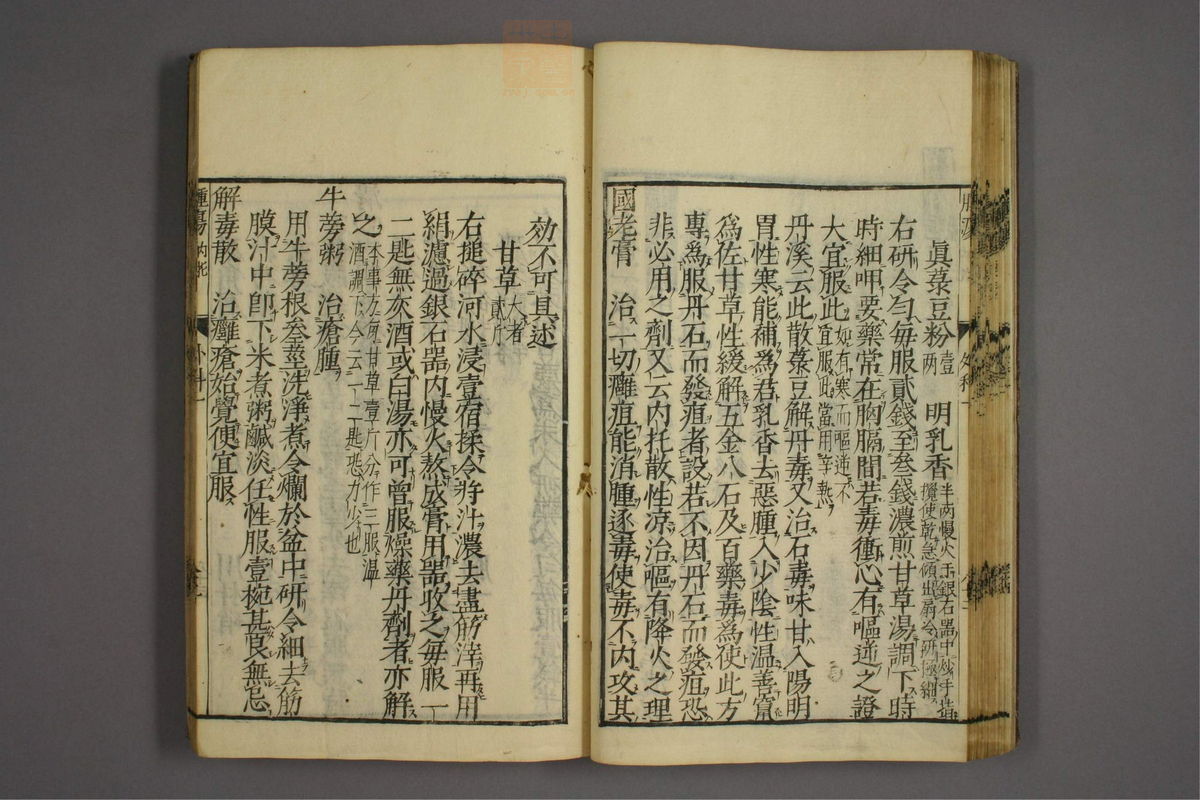 眞菉豆粉壹兩　明乳香半兩慢火于銀石器中炒手指攪使乾急傾出扇冷研極細
右研令勻每服貳錢至叁錢濃煎甘草湯調下時
時細呷要藥常在胸膈間若毒衝心有嘔逆之證
大宜服此如有寒而嘔逆不宜服此當用辛熱
丹溪云此散菉豆解丹毒又治石毒味甘入陽明
胃性寒能補為君乳香去惡腫入少陰性温善竄
為佐甘草性緩解五金八石及百藥毒為使此方
專為服丹石而發疽者設若不因丹石而發疽恐
非必用之劑又云内托散性凉治嘔有降火之理
國老膏　治一切癰疽能消腫逐毒使毒不内攻其
効不可具述
甘草大者貳斤
右搥碎河水浸壹宿揉令將汁濃去盡筋滓再用
絹濾過銀石器内慢火熬成膏用器收之每服一
二匙無灰酒或白湯亦可曾服燥藥丹劑者亦解
之本事方每甘草壹斤分作三服温酒調下今云一二匙恐力少也
牛蒡粥　治瘡腫
用牛蒡根叁莖洗淨煮令爛於盆中研令細去筋
膜汁中即下米煮粥鹹淡任性服壹椀甚良無忌
解毒散　治癰瘡始覺便宜服
腫瘍内托　外科一